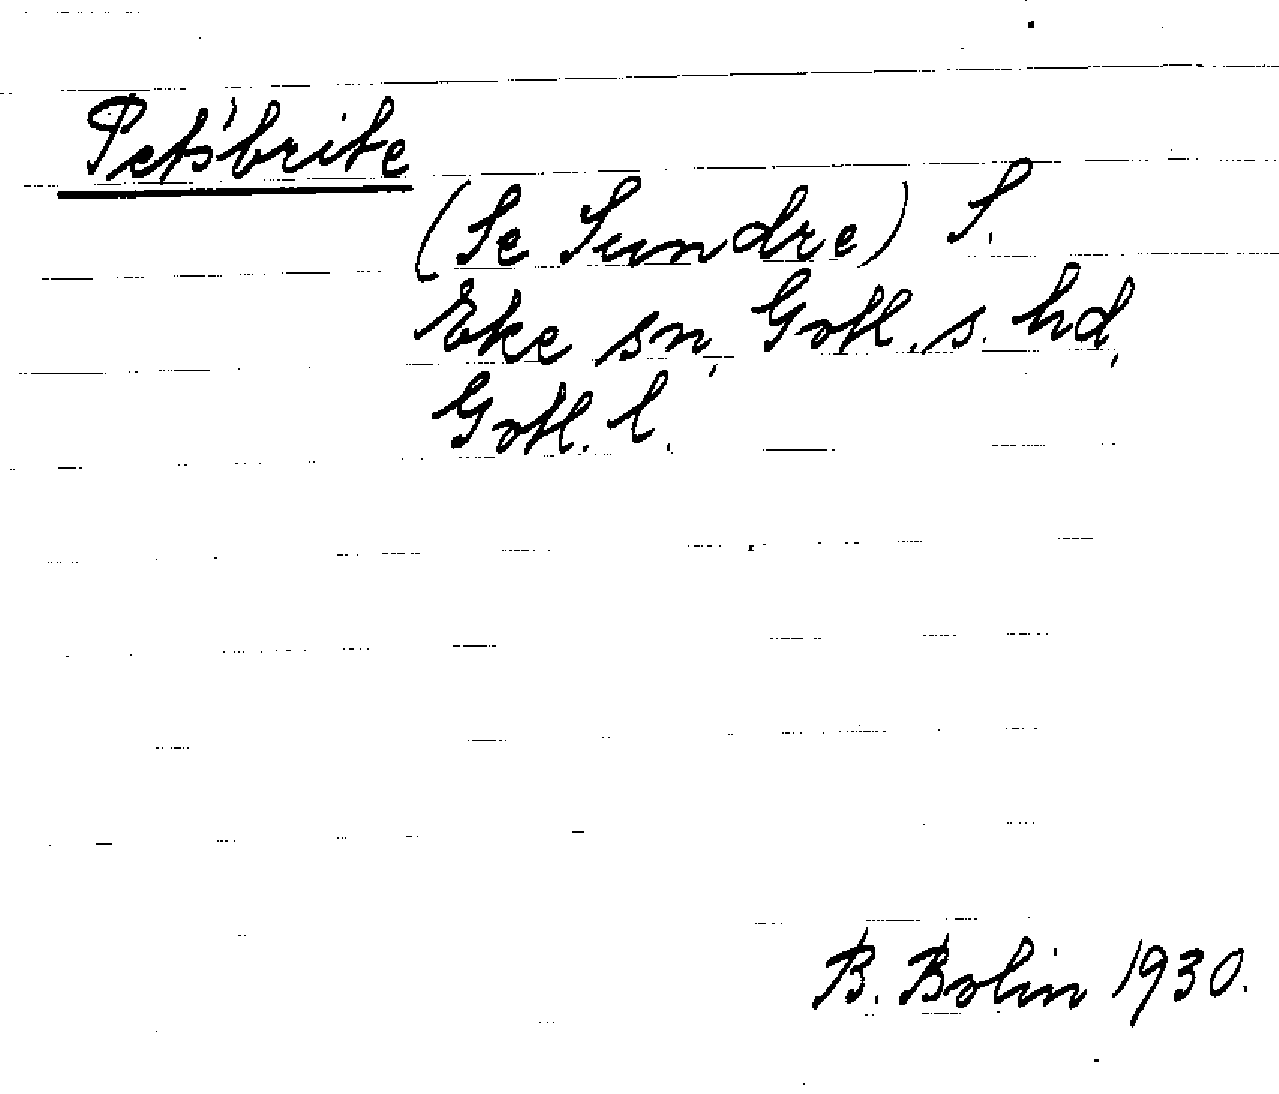 Pets'brite
(Se Sundre) S.
Eke sn, Gotl. s. hd,
Gotl. l.
B. Bolin 1930.